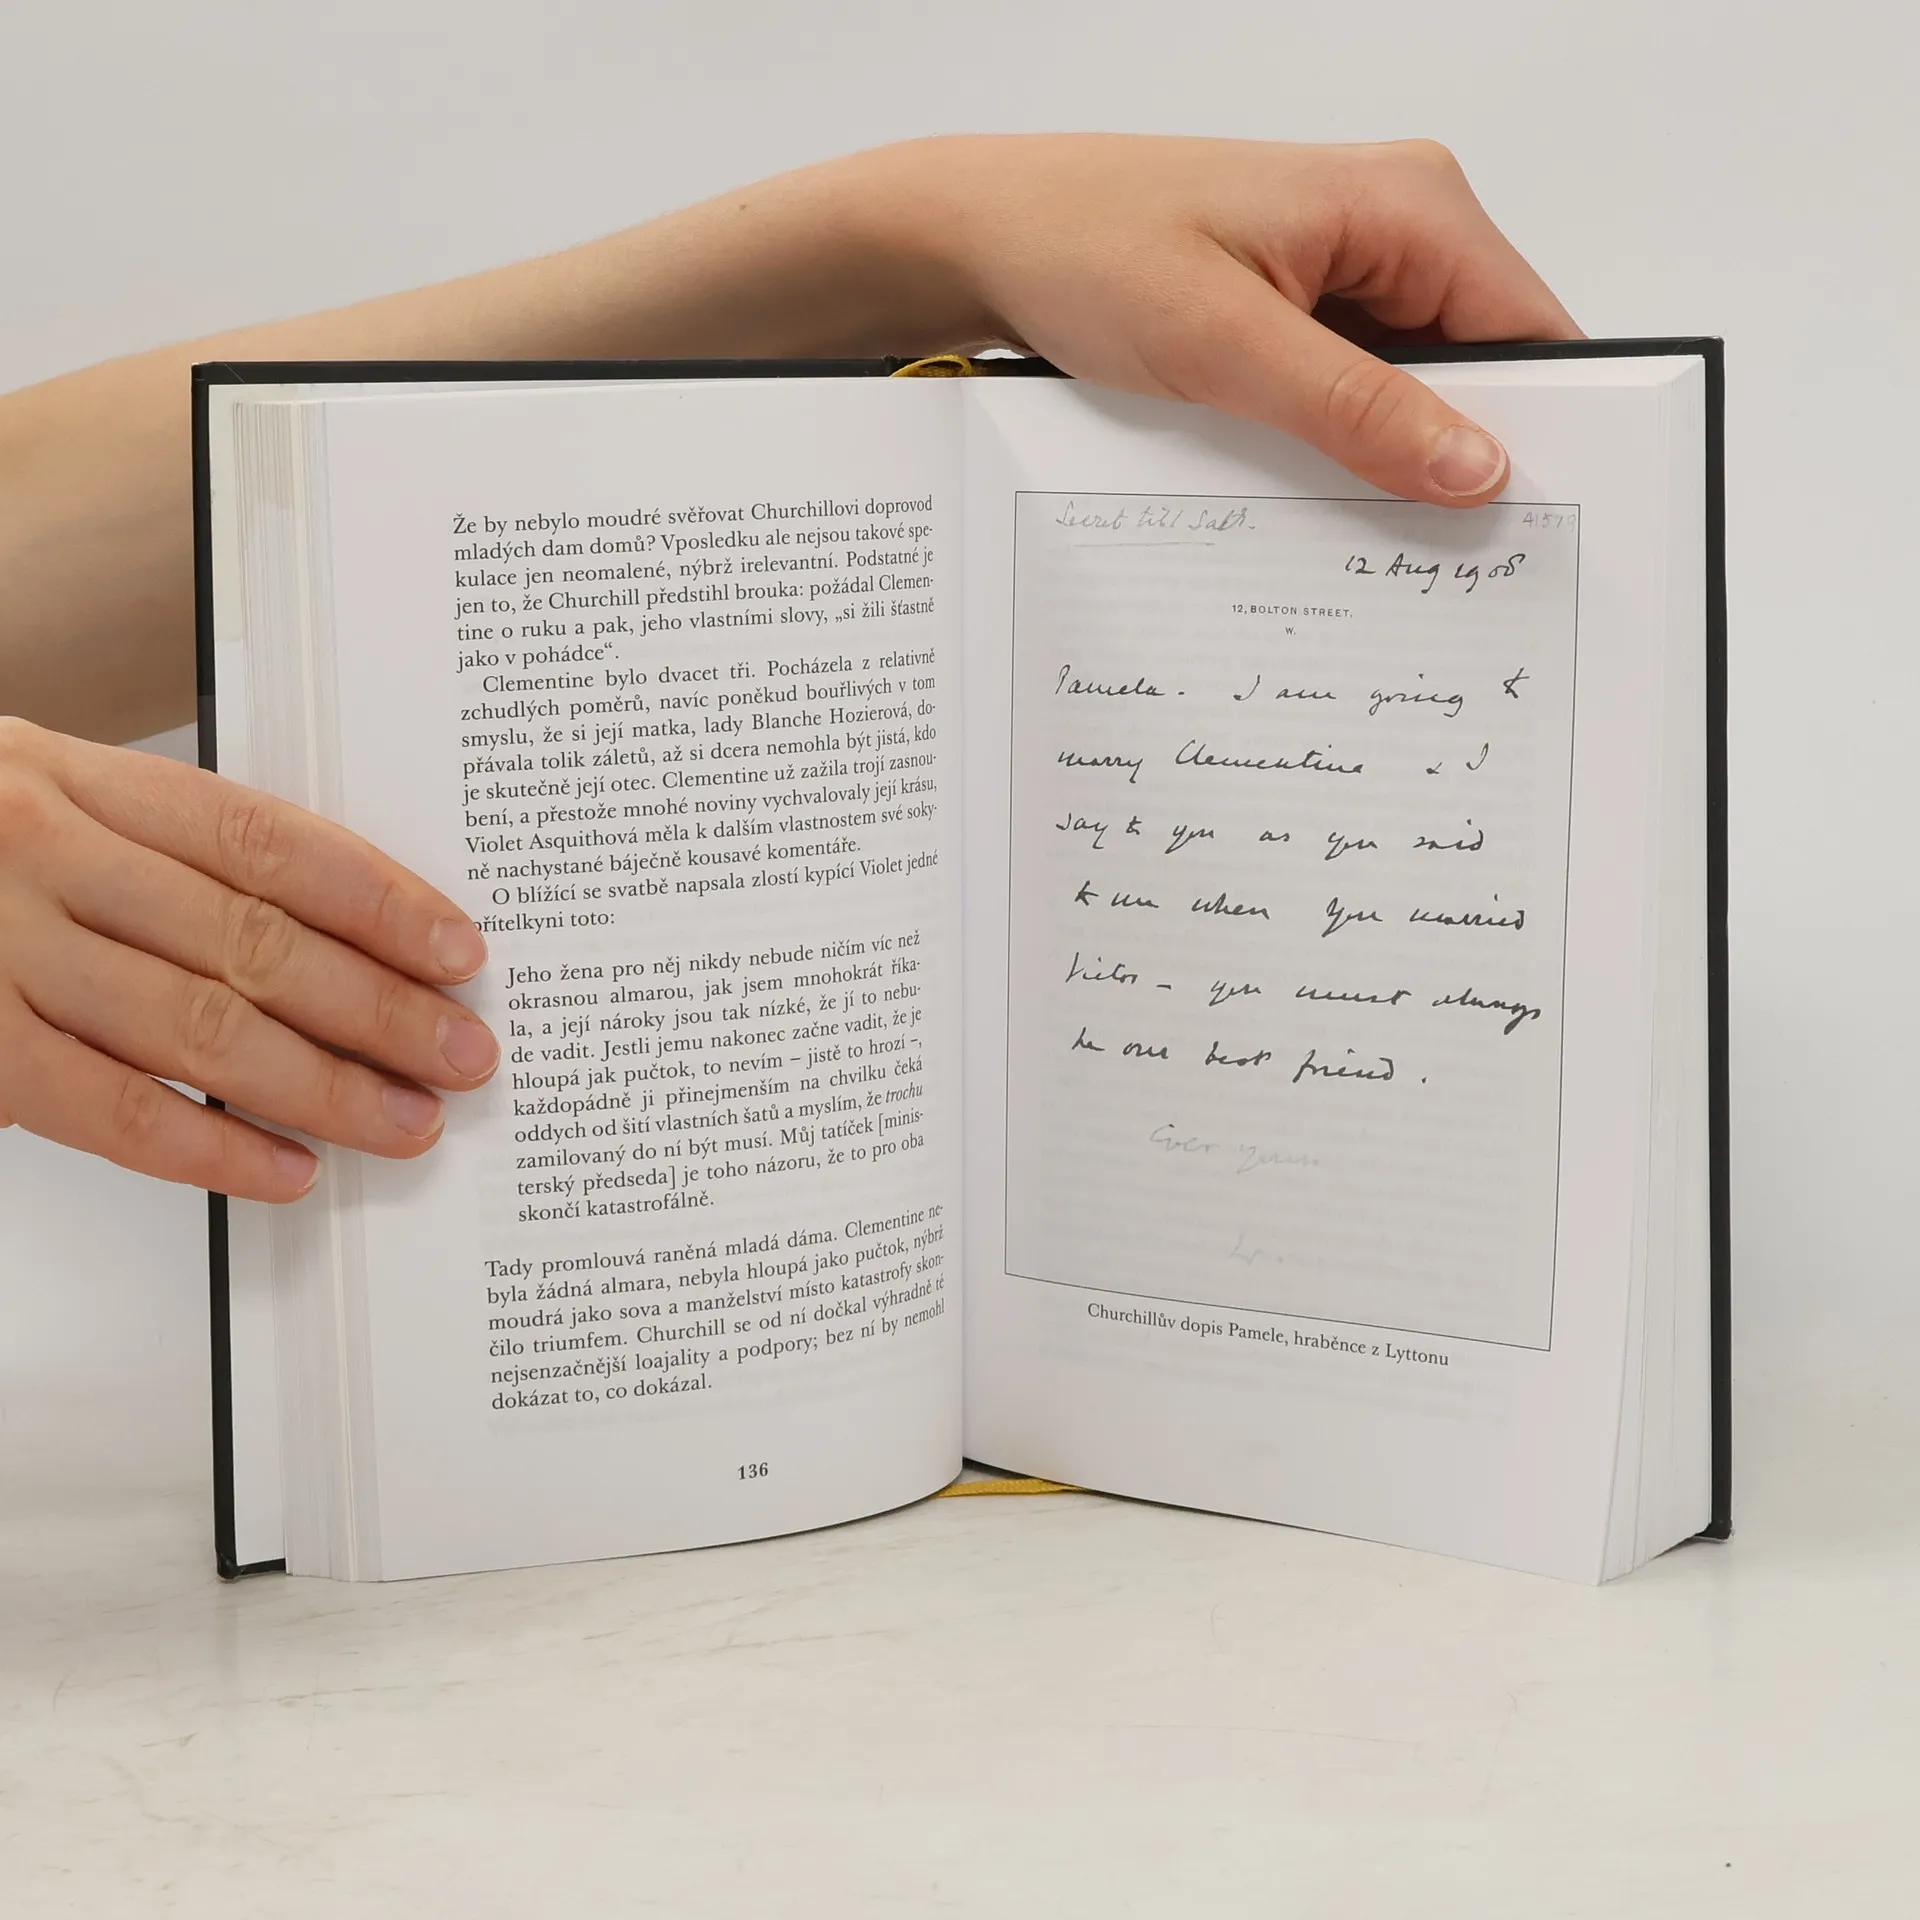 Že by nebylo moudré svěřovat Churchillovi doprovod
mladých dam domů? Vposledku ale nejsou takové spe-
kulace jen neomalené, nýbrž irelevantní. Podstatné je
jen to, že Churchill předstihl brouka: požádal Clemen-
tine o ruku a pak, jeho vlastními slovy, „si žili šťastně
jako v pohádce“.
Clementine bylo dvacet tři. Pocházela z relativně
zchudlých poměrů, navíc poněkud bouřlivých v tom
smyslu, že si její matka, lady Blanche Hozierová, do-
přávala tolik záletů, až si dcera nemohla být jistá, kdo
je skutečně její otec. Clementine už zažila trojí zasnou-
bení, a přestože mnohé noviny vychvalovaly její krásu,
Violet Asquithová měla k dalším vlastnostem své soky-
ně nachystané báječně kousavé komentáře.
O blížící se svatbě napsala zlostí kypící Violet jedné
přítelkyni toto:
Jeho žena pro něj nikdy nebude ničím víc než
okrasnou almarou, jak jsem mnohokrát říka-
la, a její nároky jsou tak nízké, že jí to nebu-
de vadit. Jestli jemu nakonec začne vadit, že je
hloupá jak pučtok, to nevím – jistě to hrozí –,
každopádně ji přinejmenším na chvilku čeká
oddych od šití vlastních šatů a myslím, že trochu
zamilovaný do ní být musí. Můj tatíček [minis-
terský předseda] je toho názoru, že to pro oba
skončí katastrofálně.
Tady promlouvá raněná mladá dáma. Clementine ne-
byla žádná almara, nebyla hloupá jako pučtok, nýbrž
moudrá jako sova a manželství místo katastrofy skon-
čilo triumfem. Churchill se od ní dočkal výhradně té
nejsenzačnější loajality a podpory; bez ní by nemohl
dokázat to, co dokázal.
136
Secret till Satr.
41579
12 Aug 1908
12, BOLTON STREET.
W.
Pamela. I am going to
marry Clementine & I
say to you as you said
to me when you married
Victor – you must always
be our best friend.
Ever yours
W.
Churchillův dopis Pamele, hraběnce z Lyttonu